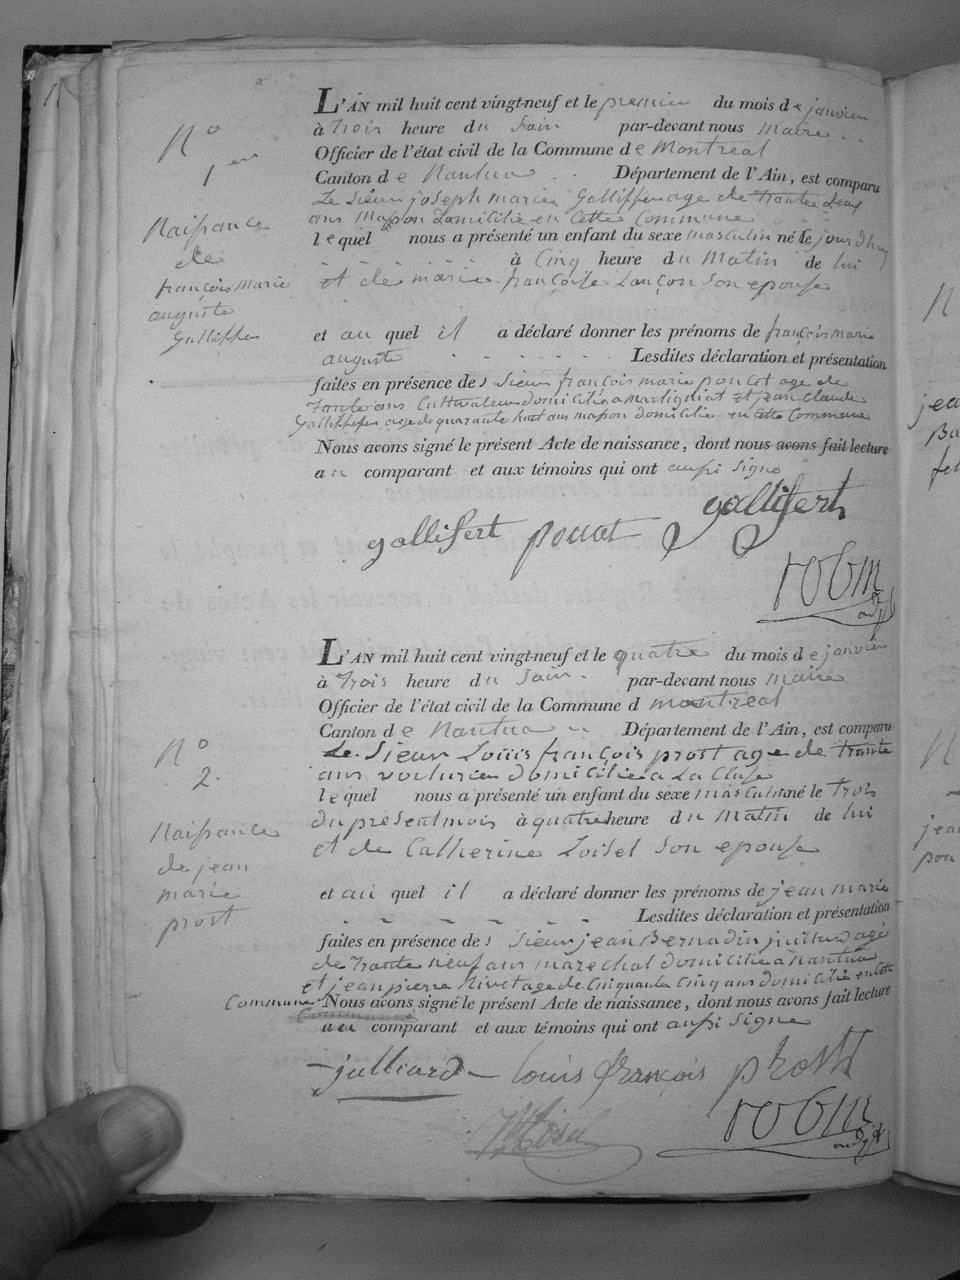 N° 1er
Naissance
de
françois Marie
auguste
Galliffer
L'AN mil huit cent vingt-neuf et le premier du mois de janvier
à trois heure du Soir par-devant nous Maire
Officier de l'état civil de la Commune de Montreal
Canton de Nantua Département de l'Ain, est comparu
Le Sieur joseph marie Galliffer age de trante deux
ans Masson domicilié en Cette Commune
lequel nous a présenté un enfant du sexe masculin né le jour d'huy
à Cinq heure du Matin de lui
et de marie françoise Lançon Son epouse
et au quel il a déclaré donner les prénoms de françois marie
auguste Lesdites déclaration et présentation
faites en présence des Sieur françois marie poncet age de
trante ans Cultivateur domicilié a Martigniat Et jean Claude
Galliffer age de quarante huit ans masson domicilié en Cette Commune
Nous avons signé le présent Acte de naissance, dont nous avons fait lecture
au comparant et aux témoins qui ont aussi Signe
gallifert poncet gallifert
robin
adjt
N° 2.
Naissance
de jean
marie
prost
L'AN mil huit cent vingt-neuf et le quatre du mois de janvier
à trois heure du Soir par-devant nous Maire
Officier de l'état civil de la Commune d montreal
Canton de Nantua Département de l'Ain, est comparu
Le Sieur Louis françois prost age de trante
ans voiturier domicilié a La Cluse
lequel nous a présenté un enfant du sexe masculin né le trois
du present mois à quatre heure du Matin de lui
et de Catherine Loisel Son epouse
et au quel il a déclaré donner les prénoms de jean marie
Lesdites déclaration et présentation
faites en présence des Sieur jean Bernadin juillard agé
de trante neuf ans marechal domicilié a Nantua
et jean pierre Nivet age de Cinquante Cinq ans domicilié en Cette
Commune Nous avons signé le présent Acte de naissance, dont nous avons fait lecture
au comparant et aux témoins qui ont aussi Signe
julliard louis françois prost
robin
adjt